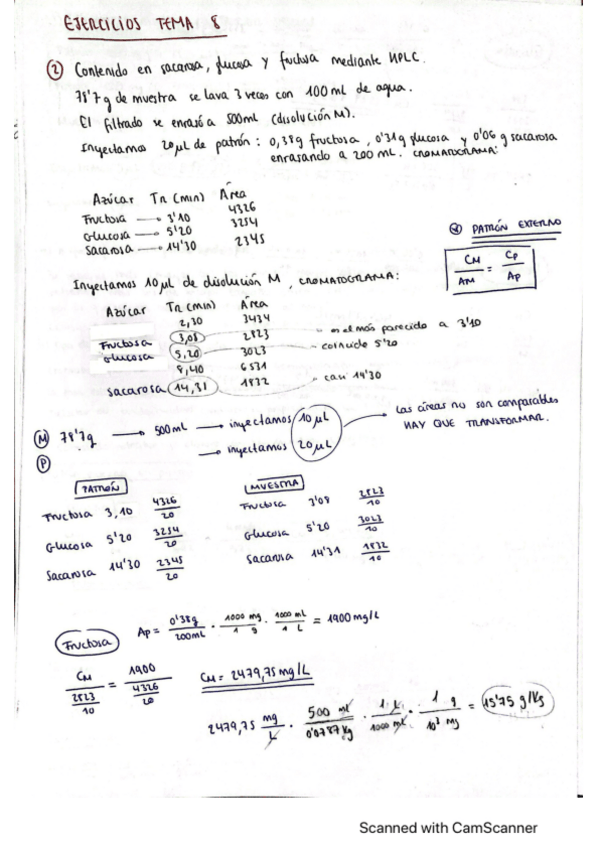 EJERCICIOS TEMA 8
② Contenido en sacarosa, glucosa y fructosa mediante HPLC.
78'7g de muestra se lava 3 veces con 100 ml de agua.
El filtrado se enrasó a 500ml (disolución M).
Inyectamos 20 µL de patrón: 0,38g fructosa, 0'31g glucosa y 0'06 g sacarosa
enrasando a 200 mL. CROMATOGRAMA:
Azúcar TR (min) Área
Fructosa 3'10 4326
Glucosa 5'20 3254
Sacarosa 14'30 2345
PATRÓN EXTERNO
CM/AM = Cp/Ap
Inyectamos 10 µL de disolución M, CROMATOGRAMA:
Azúcar TR (min) Área
2,30 3434
Fructosa 3,08 2823 es el más parecido a 3'10
Glucosa 5,20 3023 coincide 5'20
8,40 6531
sacarosa 14,31 1832 casi 14'30
Ⓜ 78'7g → 500mL → inyectamos 10 µL
Ⓟ → inyectamos 20 µL
Las áreas no son comparables
HAY QUE TRANSFORMAR.
PATRÓN MUESTRA
Fructosa 3,10 4326/20 Fructosa 3'08 2823/10
Glucosa 5'20 3254/20 Glucosa 5'20 3023/10
Sacarosa 14'30 2345/20 Sacarosa 14'31 1832/10
Fructosa Ap = 0'38g/200mL · 1000 mg/1 g · 1000 mL/1 L = 1900 mg/L
CM/(2823/10) = 1900/(4326/20) CM = 2479,75 mg/L
2479,75 mg/L · 500 ml/0'0787 Kg · 1 L/1000 ml · 1 g/10³ mg = 15'75 g/Kg
Scanned with CamScanner